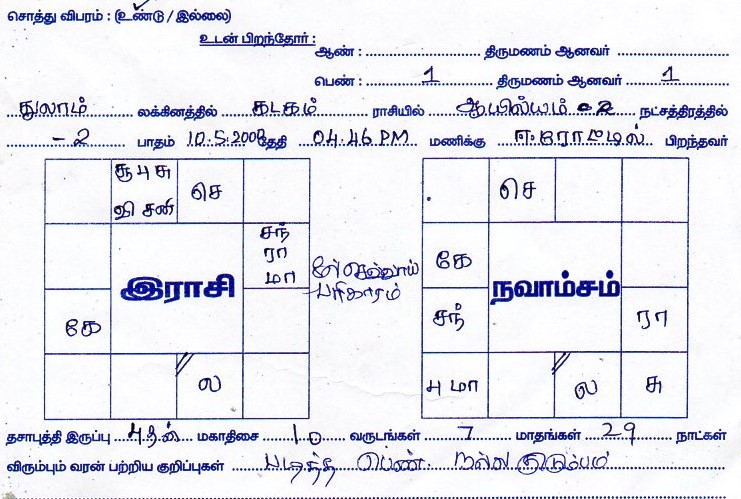 சொத்து விபரம் : (உண்டு / இல்லை)
உடன் பிறந்தோர் :
ஆண் : திருமணம் ஆனவர்
பெண் : 1 திருமணம் ஆனவர் 1
துலாம் லக்கினத்தில் கடகம் ராசியில் ஆயில்யம் -2 நட்சத்திரத்தில்
-2 பாதம் தேதி 04.46 PM மணிக்கு ஈரோட்டில் பிறந்தவர்
சூ பு சு
வி சனி
செ
சந்
ரா
மா
இராசி
கே
ல
செவ்வாய்
பரிகாரம்
செ
கே
நவாம்சம்
சந்
ரா
பு மா
ல
சு
தசாபுத்தி இருப்பு புதன் மகாதிசை 10 வருடங்கள் 7 மாதங்கள் 29 நாட்கள்
விரும்பும் வரன் பற்றிய குறிப்புகள் படித்த பெண். நல்ல குடும்பம்